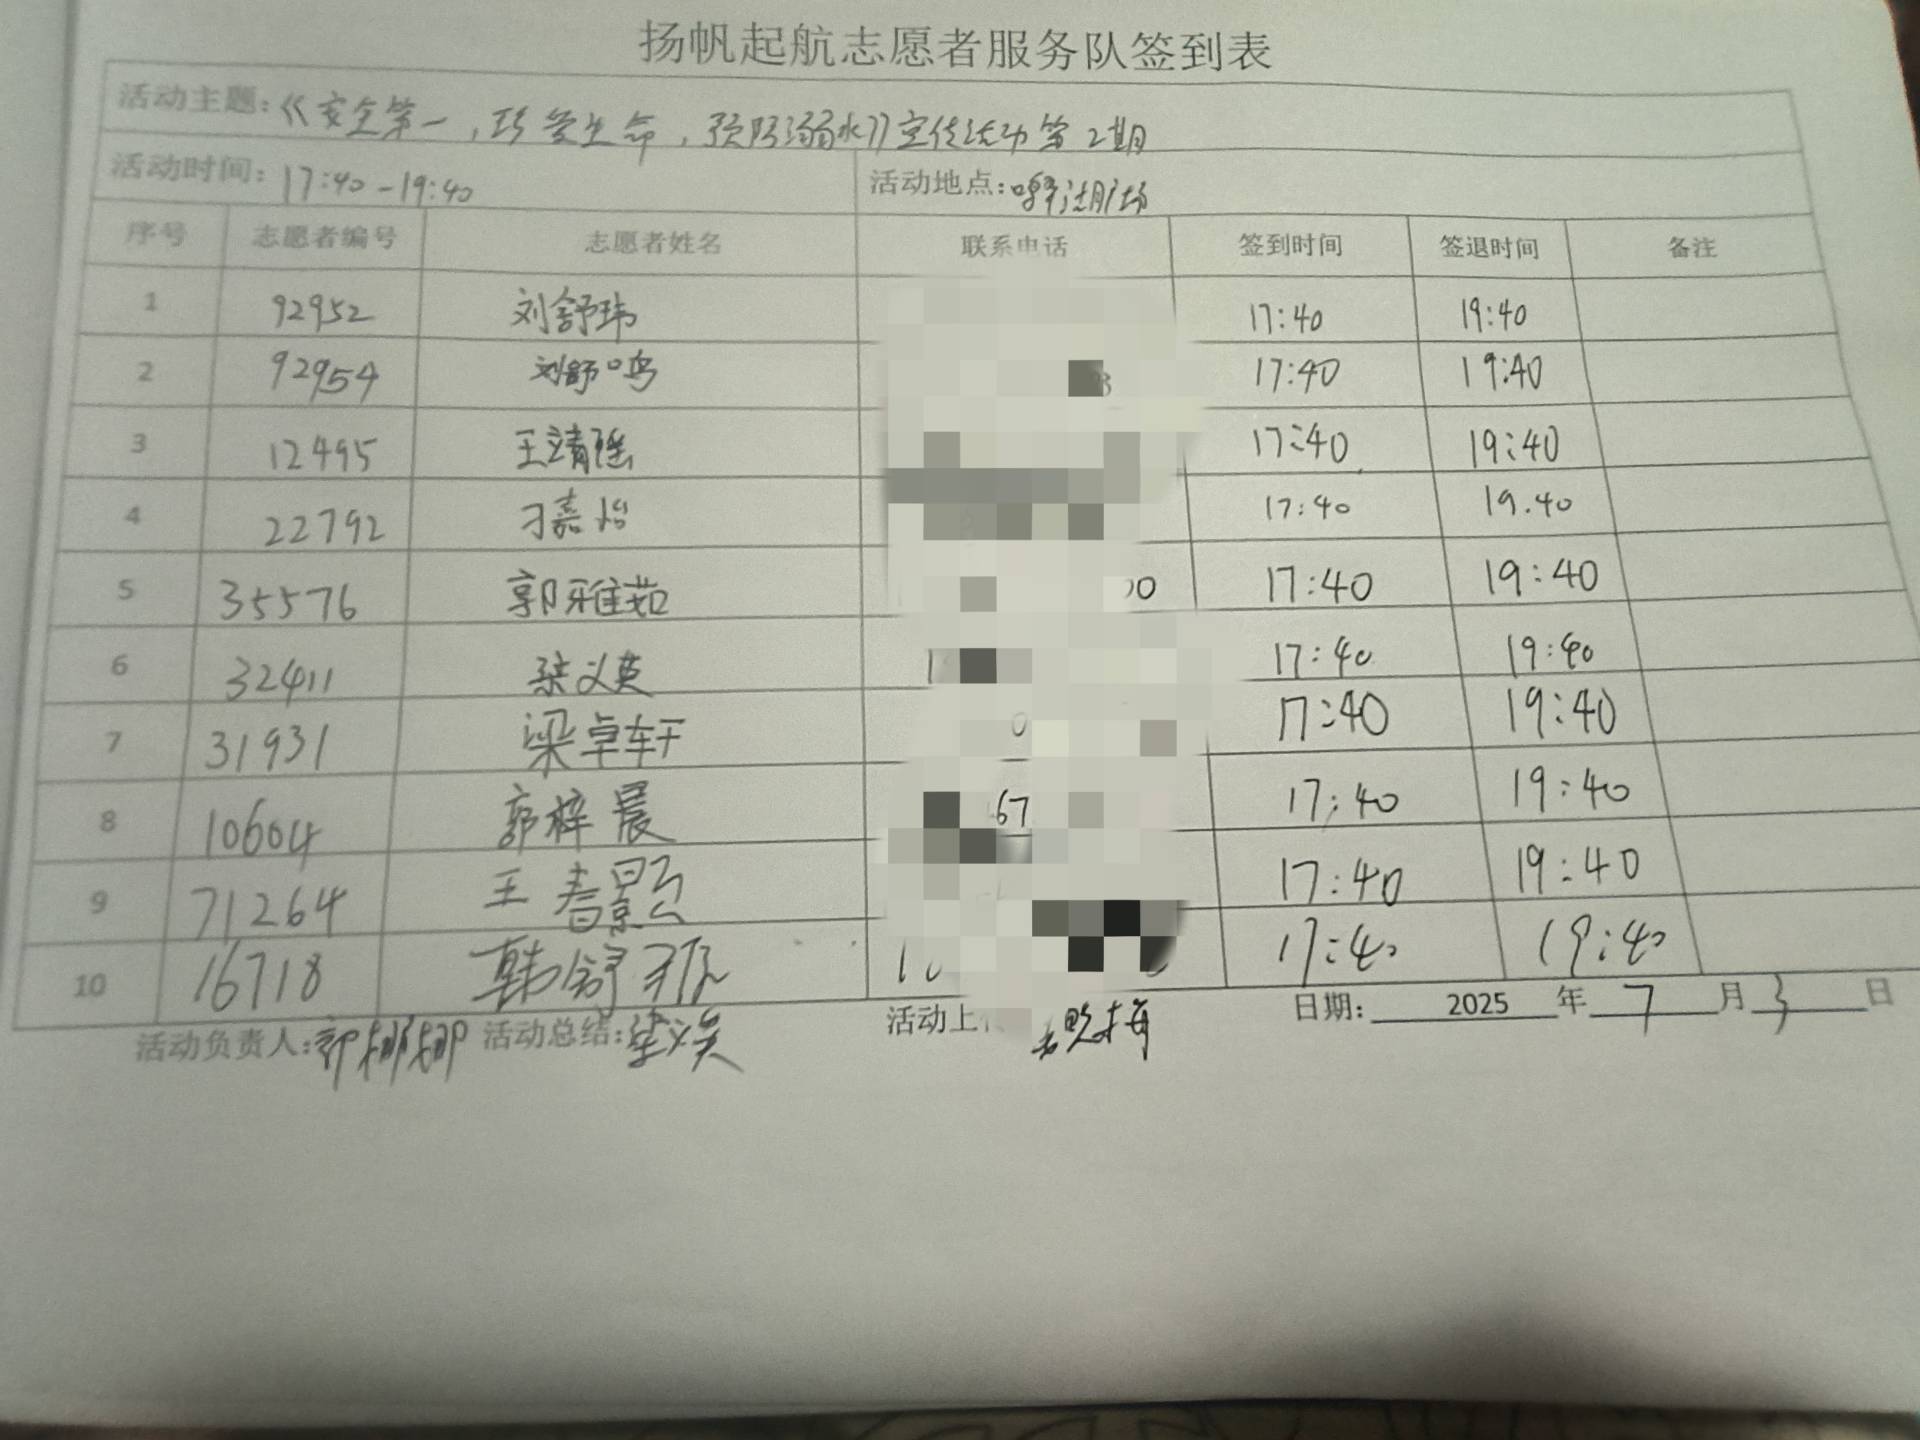 扬帆起航志愿者服务队签到表
活动主题:《安全第一,珍爱生命,预防溺水》宣传活动第2期
活动时间:17:40-19:40 活动地点:湖广场
序号 志愿者编号 志愿者姓名 联系电话 签到时间 签退时间 备注
1 92952 刘舒玮 17:40 19:40
2 92954 刘舒鸣 17:40 19:40
3 12495 王靖瑶 17:40 19:40
4 22792 刁嘉怡 17:40 19.40
5 35576 郭雅茹 17:40 19:40
6 32411 梁义英 17:40 19:40
7 31931 梁卓轩 17:40 19:40
8 10604 郭梓晨 67 17:40 19:40
9 71264 王 17:40 19:40
10 16718 韩舒 17:40 19:40
活动负责人:郭娜娜 活动总结:梁义英 活动上 日期: 2025 年 7 月 3 日